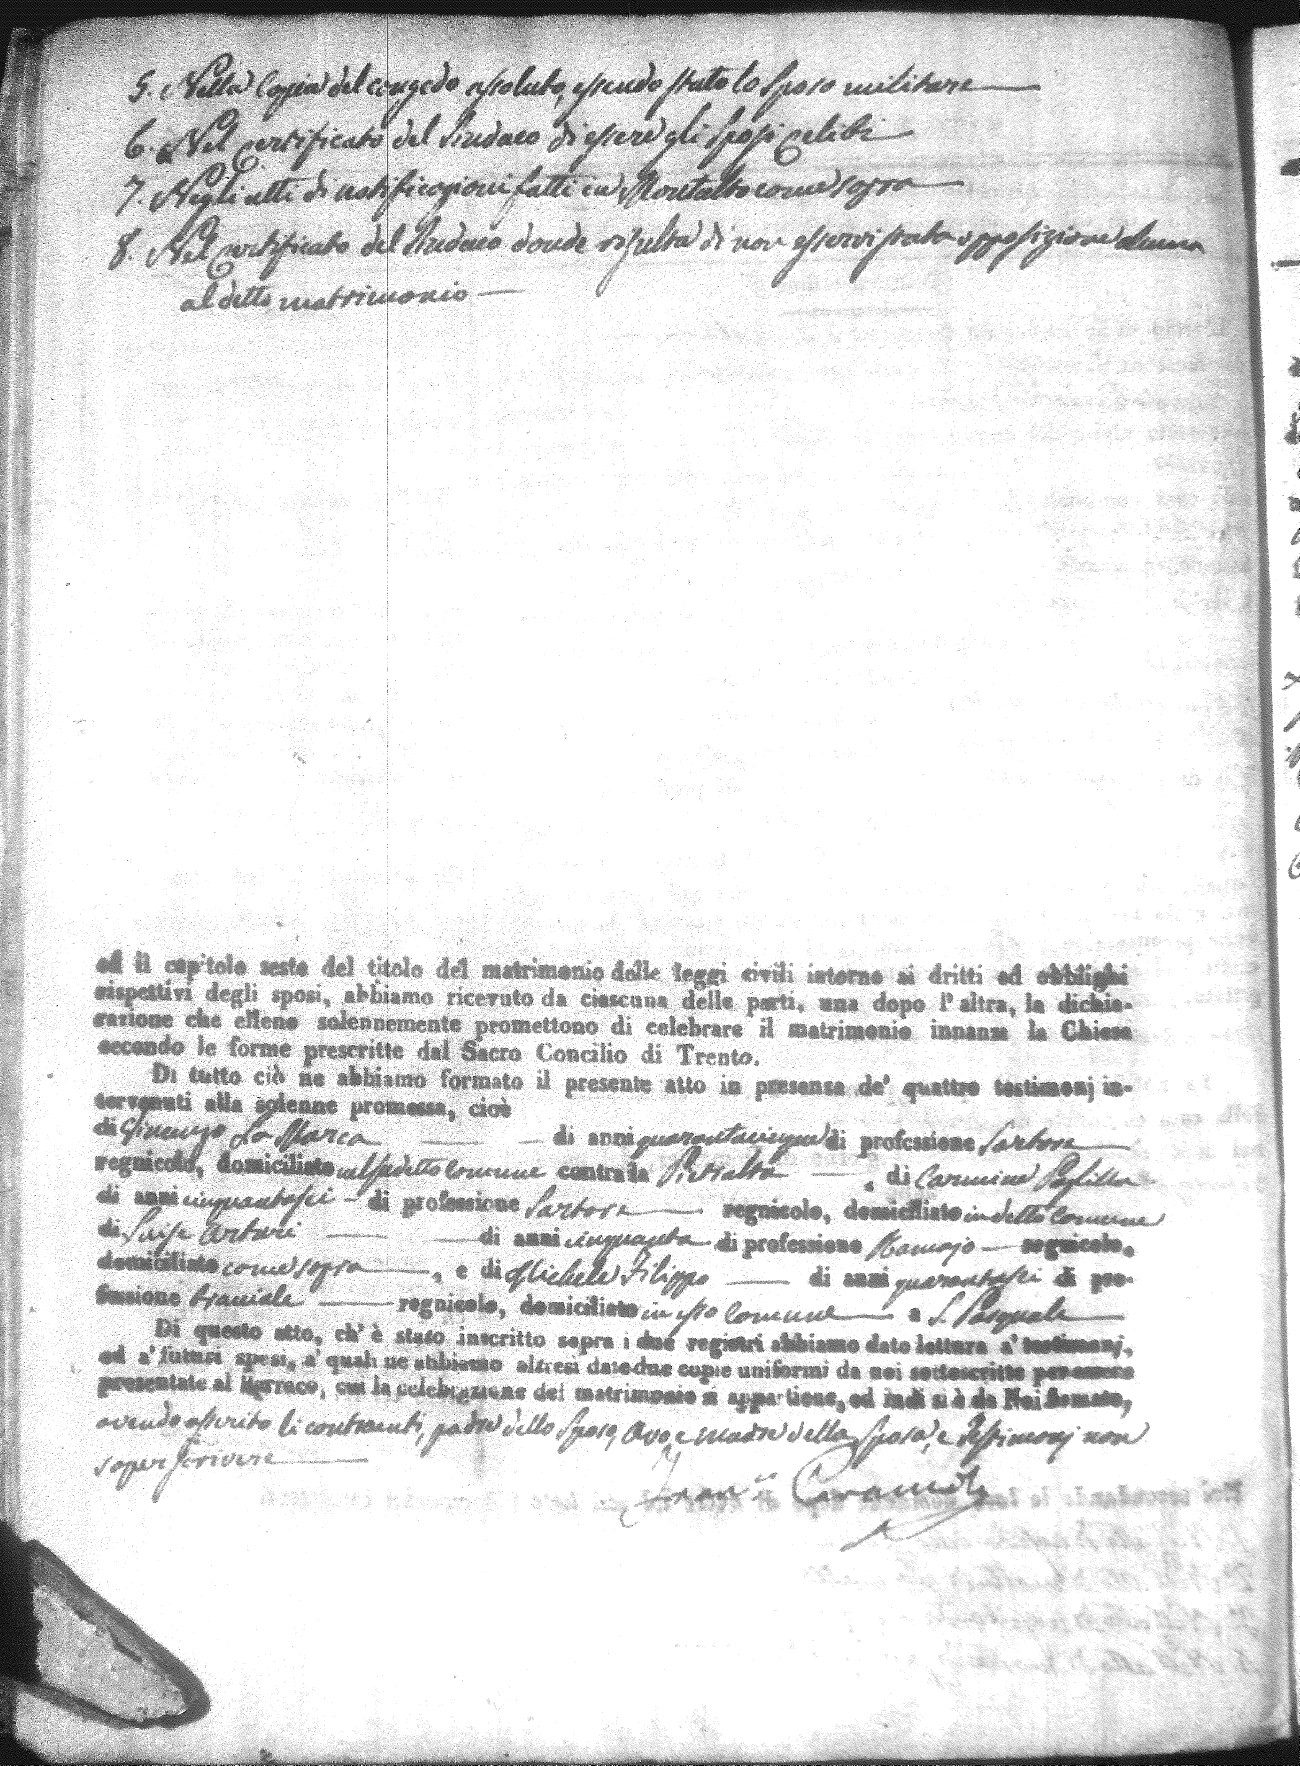 5. Nella Coppia del congedo assoluto, essendo stato lo Sposo militare
6. Nel Certificato del Sindaco di essere gli Sposi Celibi
7. Negli atti di notificazioni fatti in Montalto come sopra
8. Nel Certificato del Sindaco donde risulta di non esservi stata opposizione alcuna
al detto matrimonio
ed il capitolo sesto del titolo del matrimonio delle leggi civili intorno ai dritti ed obblighi
rispettivi degli sposi, abbiamo ricevuto da ciascuna delle parti, una dopo l'altra, la dichia-
razione che elleno solennemente promettono di celebrare il matrimonio innanzi la Chiesa
secondo le forme prescritte dal Sacro Concilio di Trento.
Di tutto ciò ne abbiamo formato il presente atto in presenza de' quattro testimonj in-
tervenuti alla solenne promessa, cioè
di La Marca di anni quarantacinque di professione Sartore
regnicolo, domiciliato nel sudetto Comune contra la , di Carmine
di anni cinquantasei di professione Sartore regnicolo, domiciliato in detto Comune
di Luigi Arturi di anni cinquanta di professione regnicolo,
domiciliato come sopra , e di Michele Filippo di anni quarantasei di pro-
fessione regnicolo, domiciliato in esso Comune a S. Pasquale
Di questo atto, ch' è stato inscritto sopra i due registri abbiamo dato lettura a' testimonj,
ed a' futuri sposi, a' quali ne abbiamo altresì date due copie uniformi da noi sottoscritte per essere
presentate al Parroco, cui la celebrazione del matrimonio si appartiene, ed indi si è da Noi firmato,
avendo asserito li contraenti, padre dello Sposo, Avo e madre della Sposa, e Testimonj non
saper scrivere